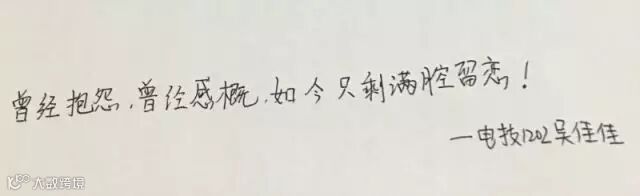 曾经抱怨,曾经感概,如今只剩满腔留恋!
—电技1202吴佳佳
大数跨境